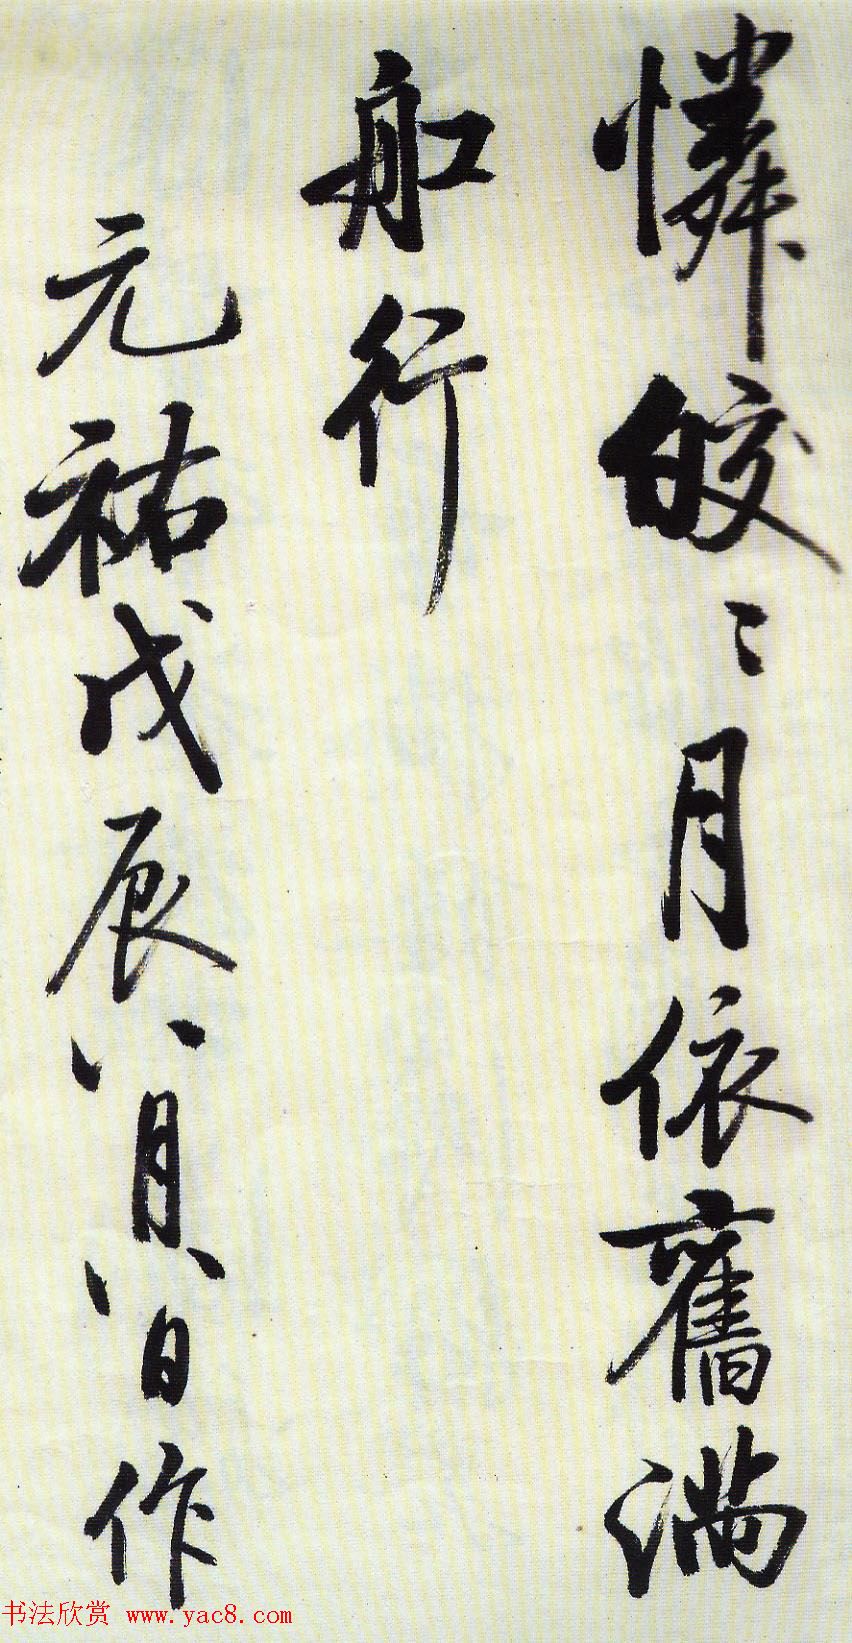 憐皎〻月依舊滿
舡行
元祐戊辰八月八日作
书法欣赏 www.yac8.com